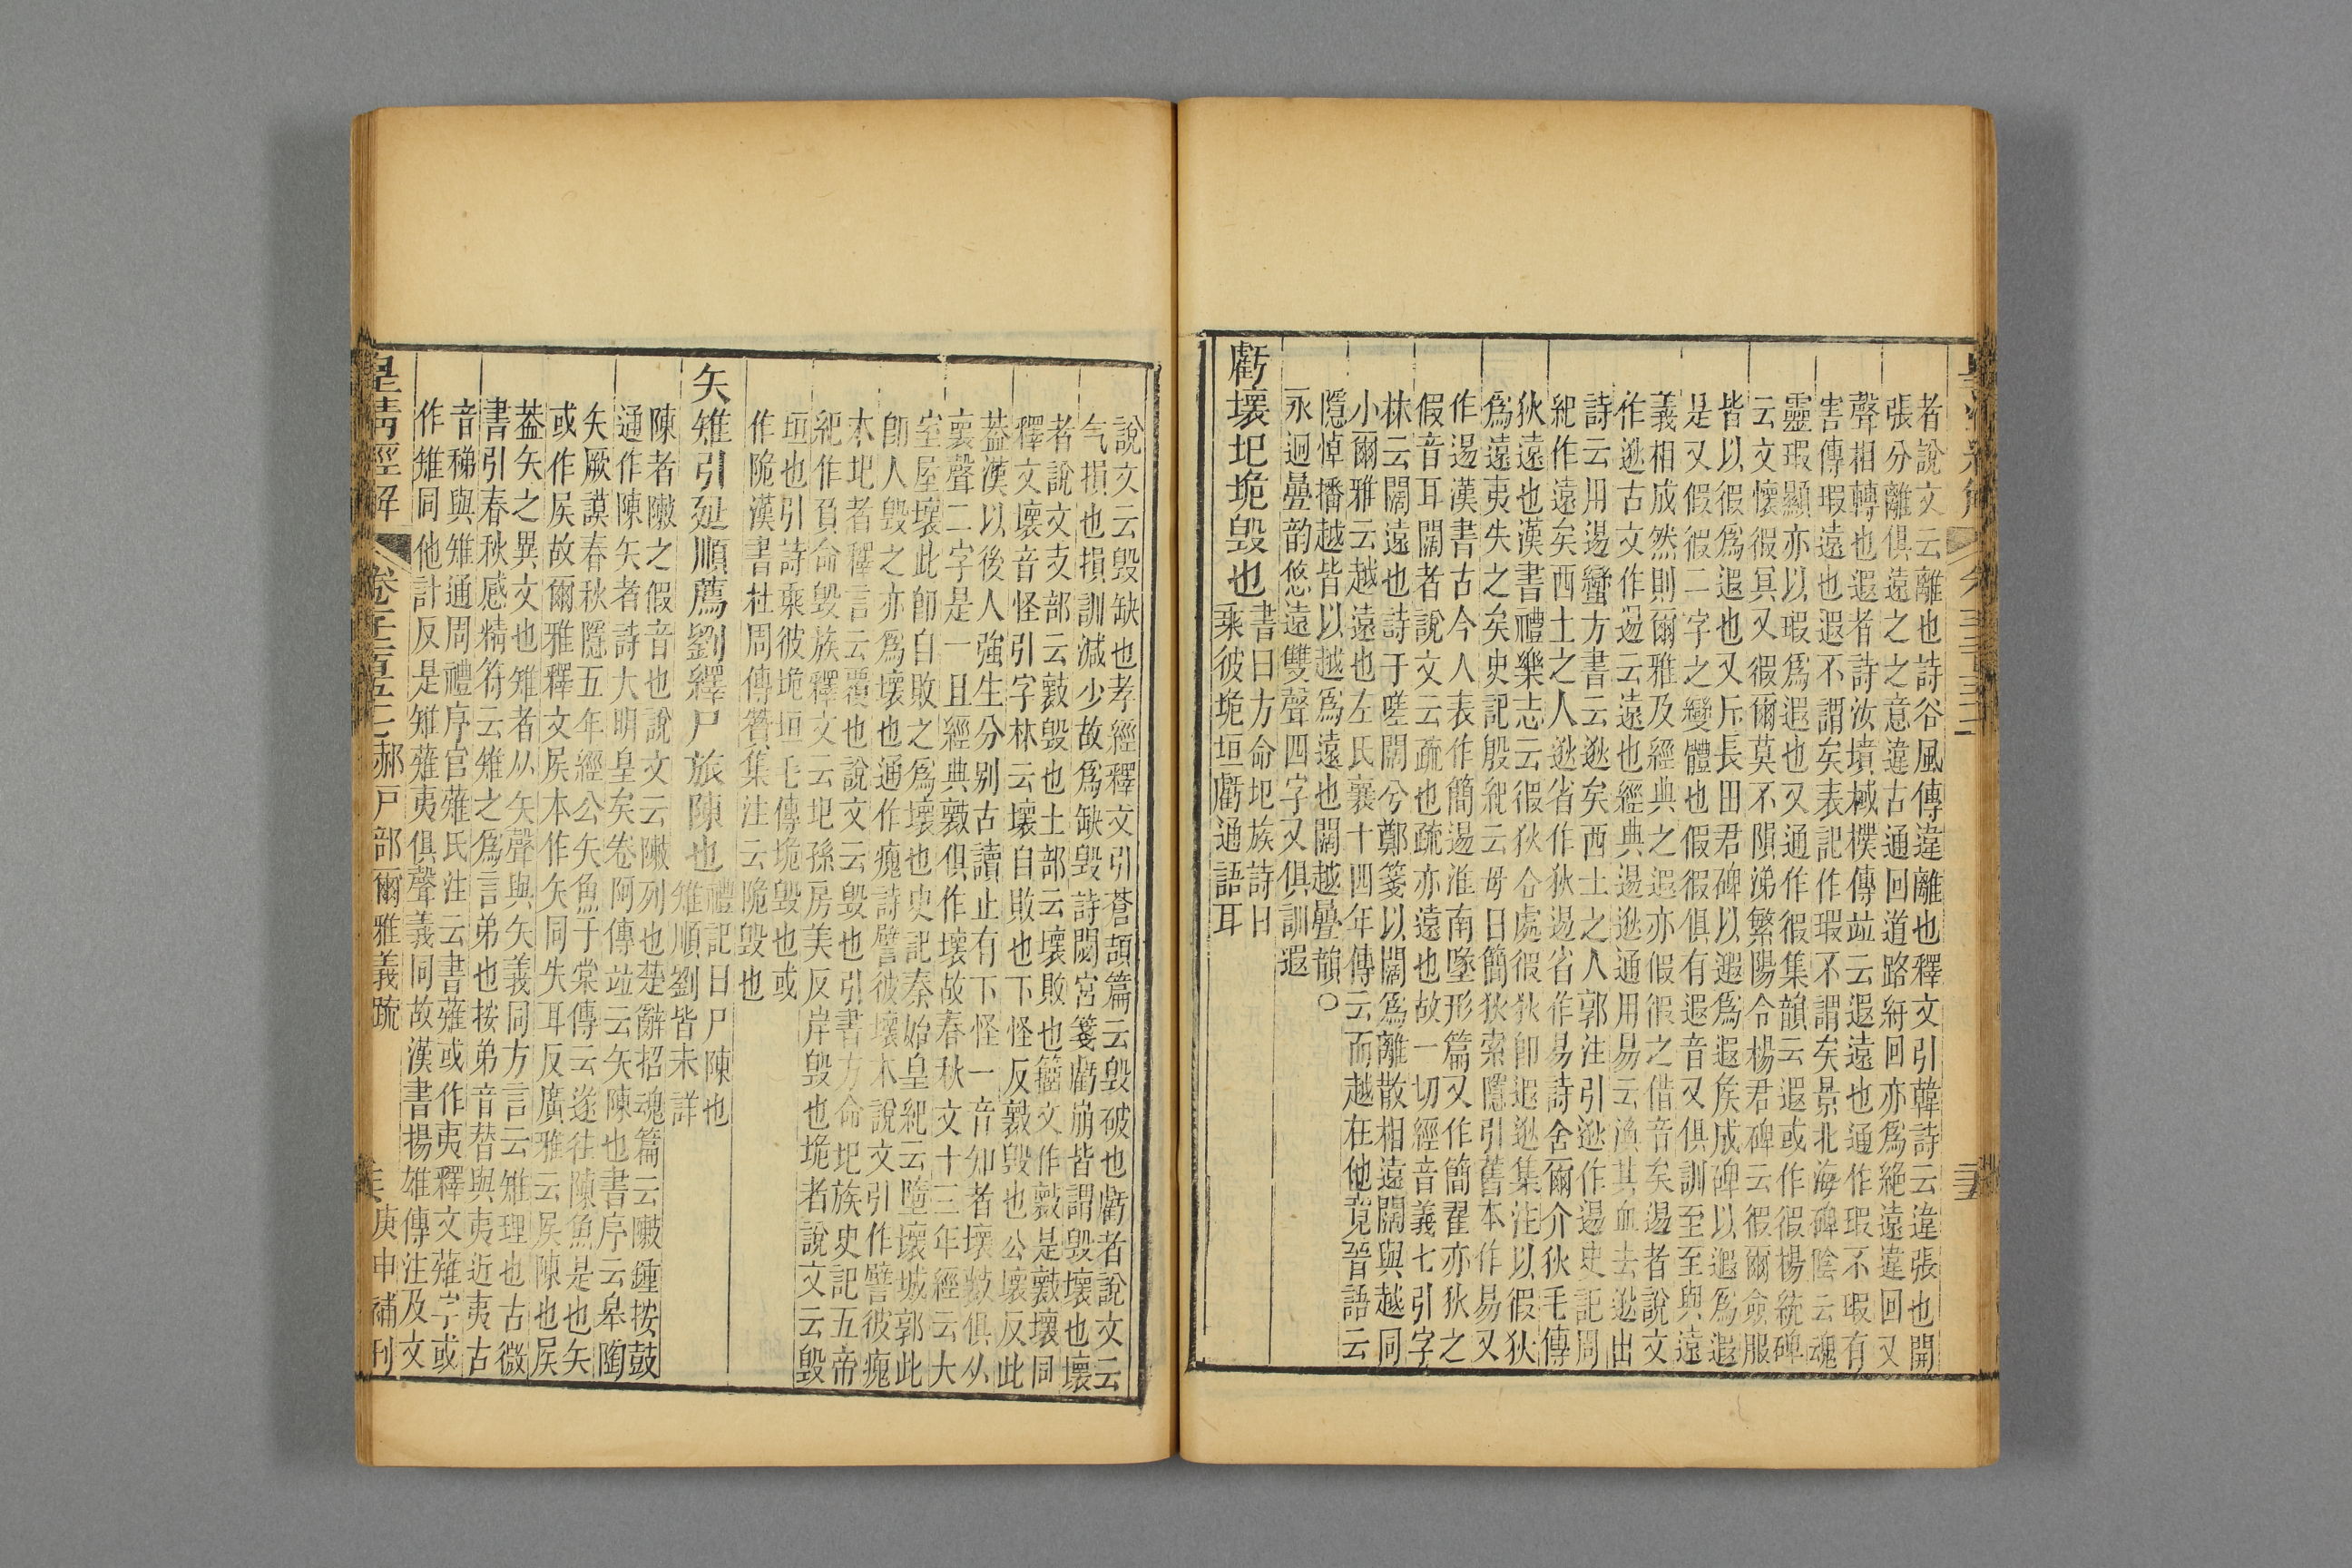 者說文云離也詩谷風傳違離也釋文引韓詩云違張也開
張分離俱遠之意違古通回道路紆回亦爲絶遠違回又
聲相轉也遐者詩汝墳棫樸傳竝云遐遠也通作瑕不瑕有
害傳瑕遠也遐不謂矣表記作瑕不謂矣景北海碑陰云魂
靈瑕顯亦以瑕爲遐也又通作徦集韻云遐或作徦楊統碑
云文懷徦冥又徦爾莫不隕涕繁陽令楊君碑云徦爾僉服
皆以徦爲遐也又斥長田君碑以遐爲遐矦成碑以遐爲遐
是又假徦二字之變體也假徦俱有遐音又俱訓至至與遠
義相成然則爾雅及經典之遐亦假徦之借音矣逷者說文
作逖古文作逷云遠也經典逷逖通用易云渙其血去逖出
詩云用逷蠻方書云逖矣西土之人郭注引逖作逷史記周
紀作遠矣西土之人逖省作狄逷省作易詩舍爾介狄毛傳
狄遠也漢書禮樂志云徦狄合處徦狄卽遐逖集注以徦狄
爲遠夷失之矣史記殷紀云母曰簡狄索隱引舊本作易又
作逷漢書古今人表作簡逷淮南墜形篇又作簡翟亦狄之
假音耳闊者說文云疏也疏亦遠也故一切經音義七引字
林云闊遠也詩于嗟闊兮鄭箋以闊爲離散相遠闊與越同
小爾雅云越遠也左氏襄十四年傳云而越在他竟晉語云
隱悼播越皆以越爲遠也闊越疊韻○
永迥疊韵悠遠雙聲四字又俱訓遐
虧壞圮垝毀也
書曰方命圮族詩曰
乘彼垝垣虧通語耳
說文云毀缺也孝經釋文引蒼頡篇云毀破也虧者說文云
气損也損訓減少故爲缺毀詩閟宮箋虧崩皆謂毀壞也壞
者說文攴部云敤毀也土部云壞敗也籒文作敤是敤壞同
釋文壞音怪引字林云壞自敗也下怪反敤毀也公壞反此
葢漢以後人強生分别古讀止有下怪一音知者壞敤俱从
褱聲二字是一且經典敤俱作壞故春秋文十三年經云大
室屋壞此卽自敗之爲壞也史記秦始皇紀云墮壞城郭此
卽人毀之亦爲壞也通作瘣詩譬彼壞木說文引作譬彼瘣
木圮者釋言云覆也說文云毀也引書方命圮族史記五帝
紀作負命毀族釋文云圮孫房美反岸毀也垝者說文云毀
垣也引詩乘彼垝垣毛傳垝毀也或
作陒漢書杜周傳贊集注云陒毀也
矢雉引延順薦劉繹尸旅陳也
禮記曰尸陳也
雉順劉皆未詳
陳者敶之假音也說文云敶列也楚辭招魂篇云敶鍾按鼓
通作陳矢者詩大明皇矣卷阿傳竝云矢陳也書序云皋陶
矢厥謨春秋隱五年經公矢魚于棠傳云遂往陳魚是也矢
或作𡱁故爾雅釋文𡱁本作矢同失耳反廣雅云𡱁陳也𡱁
葢矢之異文也雉者从矢聲與矢義同方言云雉理也古微
書引春秋感精符云雉之爲言弟也按弟音替與夷近夷古
音稊與雉通周禮序官薙氏注云書薙或作夷釋文薙字或
作雉同他計反是雉薙夷俱聲義同故漢書揚雄傳注及文
皇淸經解
郝戶部爾雅義疏
庚申補刊